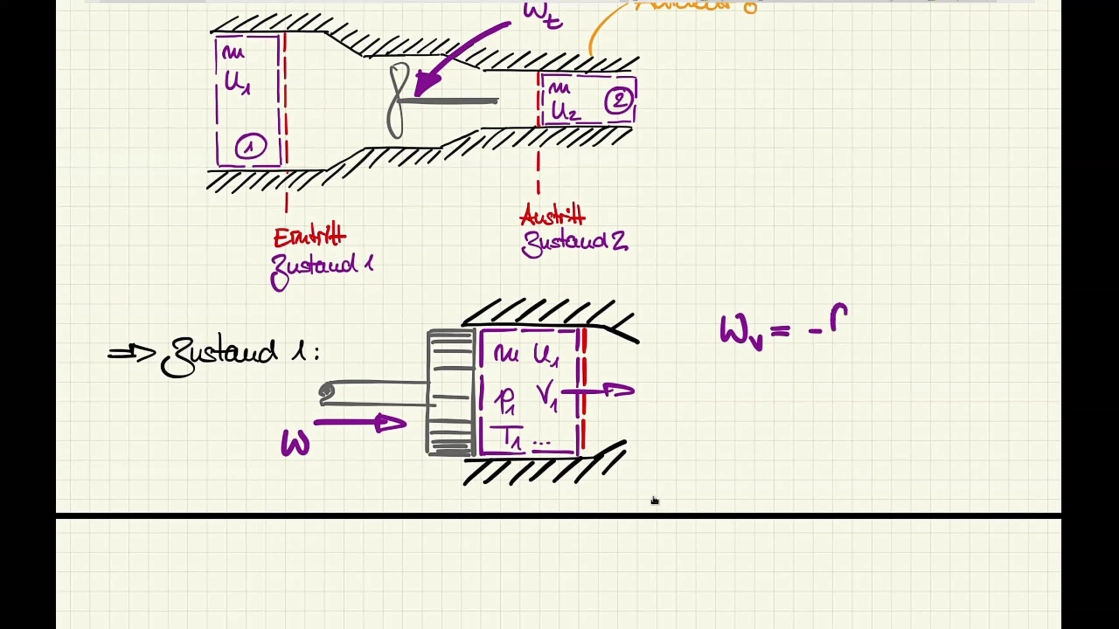 W_t
m
U_1
1
m
U_2
2
Eintritt
Zustand 1
Austritt
Zustand 2
=> Zustand 1:
W
m U_1
p_1 V_1
T_1 ...
W_V = -